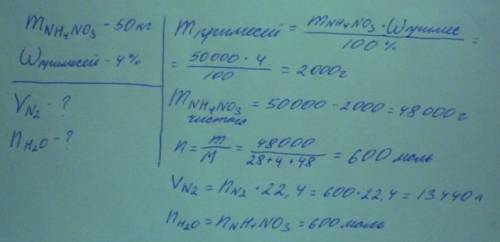 mNH4NO3 - 50 кг
Wпримесей - 4%
VN2 - ?
nH2O - ?
mпримесей = mNH4NO3 · Wпримес / 100% =
= 50000 · 4 / 100 = 2000г
mNH4NO3 чистого = 50000 - 2000 = 48000 г
n = m/M = 48000 / 28+4+48 = 600 моль
VN2 = nN2 * 22,4 = 600 · 22,4 = 13440 л
nH2O = nNH4NO3 = 600 моль